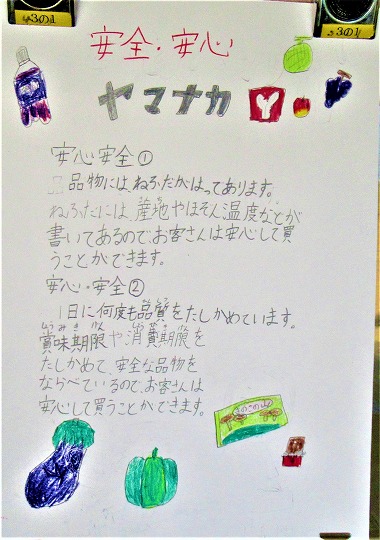 3の1
3の1
安全・安心
ヤマナカ Y
安心安全①
品物にはねふだがはってあります。
ねふだには、産地やほぞん温度などが
書いてあるので、お客さんは安心して買
うことができます。
安心・安全②
1日に何度も品質をたしかめています。
賞味期限や消費期限を
たしかめて、安全な品物を
ならべているので、お客さんは
安心して買うことができます。
きのこの山